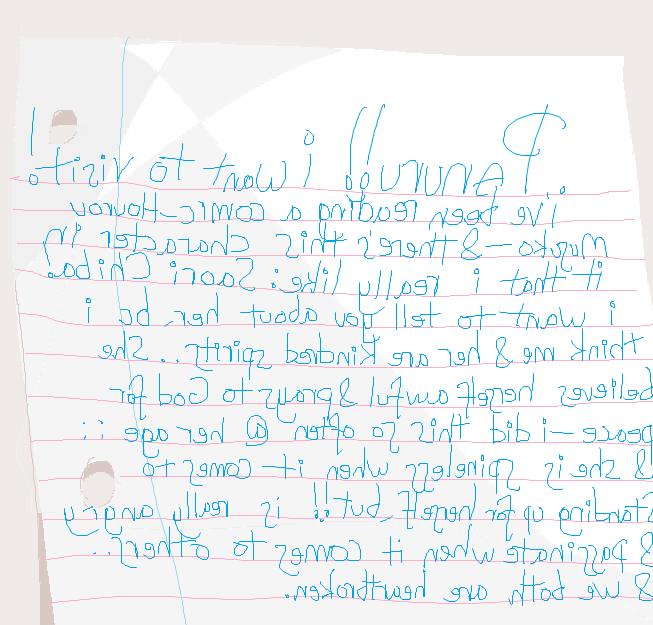 i want to visit.!
i've been reading a comic-Hourou
Musuko-& there's this character in
it that i really like: Saori Chiba.
i want to tell you about her, bc i
think me & her are kindred spirits.. She
believes herself awful & prays to God for
peace-i did this so often @ her age ::
& she is spineless when it comes to
standing up for herself, but!! is really angry
& passinate when it comes to others..
& we both are heartbroken.